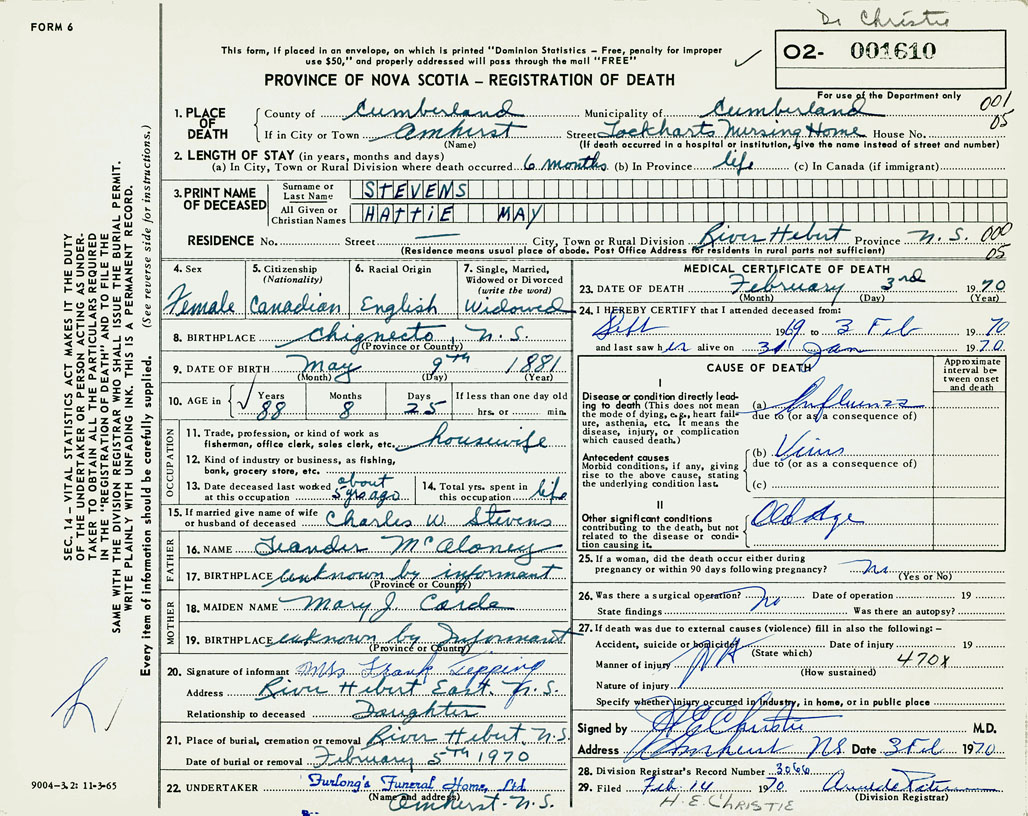 Dr Christie
FORM 6
O2- 001610
This form, if placed in an envelope, on which is printed "Dominion Statistics – Free, penalty for improper
use $50," and properly addressed will pass through the mail "FREE"
PROVINCE OF NOVA SCOTIA – REGISTRATION OF DEATH
For use of the Department only
001
05
1. PLACE OF DEATH
County of Cumberland Municipality of Cumberland
If in City or Town Amherst Street Lockharts Nursing Home House No.
(Name) (If death occurred in a hospital or institution, give the name instead of street and number)
2. LENGTH OF STAY (in years, months and days)
(a) In City, Town or Rural Division where death occurred 6 months (b) In Province life (c) In Canada (if immigrant)
3. PRINT NAME OF DECEASED
Surname or Last Name STEVENS
All Given or Christian Names HATTIE MAY
RESIDENCE No. Street — City, Town or Rural Division River Hebert Province N.S.
000
05
(Residence means usual place of abode. Post Office Address for residents in rural parts not sufficient)
4. Sex
Female
5. Citizenship
(Nationality)
Canadian
6. Racial Origin
English
7. Single, Married,
Widowed or Divorced
(write the word)
Widowed
8. BIRTHPLACE Chignecto, N.S.
(Province or Country)
9. DATE OF BIRTH May 9th 1881
(Month) (Day) (Year)
10. AGE in Years Months Days If less than one day old
88 8 25 hrs. or min.
OCCUPATION
11. Trade, profession, or kind of work as
fisherman, office clerk, sales clerk, etc. housewife
12. Kind of industry or business, as fishing,
bank, grocery store, etc.
13. Date deceased last worked at this occupation about 5 yrs ago
14. Total yrs. spent in this occupation life
15. If married give name of wife
or husband of deceased Charles W. Stevens
FATHER
16. NAME Leander McAloney
17. BIRTHPLACE unknown by informant
(Province or Country)
MOTHER
18. MAIDEN NAME Mary J.
19. BIRTHPLACE unknown by Informant
(Province or Country)
20. Signature of informant Mrs Frank Tepping
Address River Hebert East. N.S.
Relationship to deceased Daughter
21. Place of burial, cremation or removal River Hebert N.S.
Date of burial or removal February 5th 1970
22. UNDERTAKER Furlong's Funeral Home, Ltd
(Name and address)
Amherst. N.S.
MEDICAL CERTIFICATE OF DEATH
23. DATE OF DEATH February 3rd 1970
(Month) (Day) (Year)
24. I HEREBY CERTIFY that I attended deceased from:
Sept 1969 to 3 Feb 1970
and last saw her alive on 31 Jan 1970
CAUSE OF DEATH
Approximate
interval be-
tween onset
and death
I
Disease or condition directly lead-
ing to death (This does not mean
the mode of dying, e.g., heart fail-
ure, asthenia, etc. It means the
disease, injury, or complication
which caused death.)
(a) Influenza
due to (or as a consequence of)
Antecedent causes
Morbid conditions, if any, giving
rise to the above cause, stating
the underlying condition last.
(b) Virus
due to (or as a consequence of)
(c)
II
Other significant conditions
contributing to the death, but not
related to the disease or condi-
tion causing it.
Old Age
25. If a woman, did the death occur either during
pregnancy or within 90 days following pregnancy? No
(Yes or No)
26. Was there a surgical operation? No Date of operation 19
State findings Was there an autopsy?
27. If death was due to external causes (violence) fill in also the following:–
Accident, suicide or homicide Date of injury 19
(State which)
Manner of injury 470X
(How sustained)
Nature of injury
Specify whether injury occurred in industry, in home, or in public place
Signed by H E Christie M.D.
Address Amherst NS Date 3 Feb 1970
28. Division Registrar's Record Number 3066
29. Filed Feb 14 1970
(Division Registrar)
H. E. CHRISTIE
SEC. 14 – VITAL STATISTICS ACT MAKES IT THE DUTY
OF THE UNDERTAKER OR PERSON ACTING AS UNDER-
TAKER TO OBTAIN ALL THE PARTICULARS REQUIRED
IN THE "REGISTRATION OF DEATH" AND TO FILE THE
SAME WITH THE DIVISION REGISTRAR WHO SHALL ISSUE THE BURIAL PERMIT.
WRITE PLAINLY WITH UNFADING INK. THIS IS A PERMANENT RECORD.
Every item of information should be carefully supplied. (See reverse side for instructions.)
9004-3.2: 11-3-65